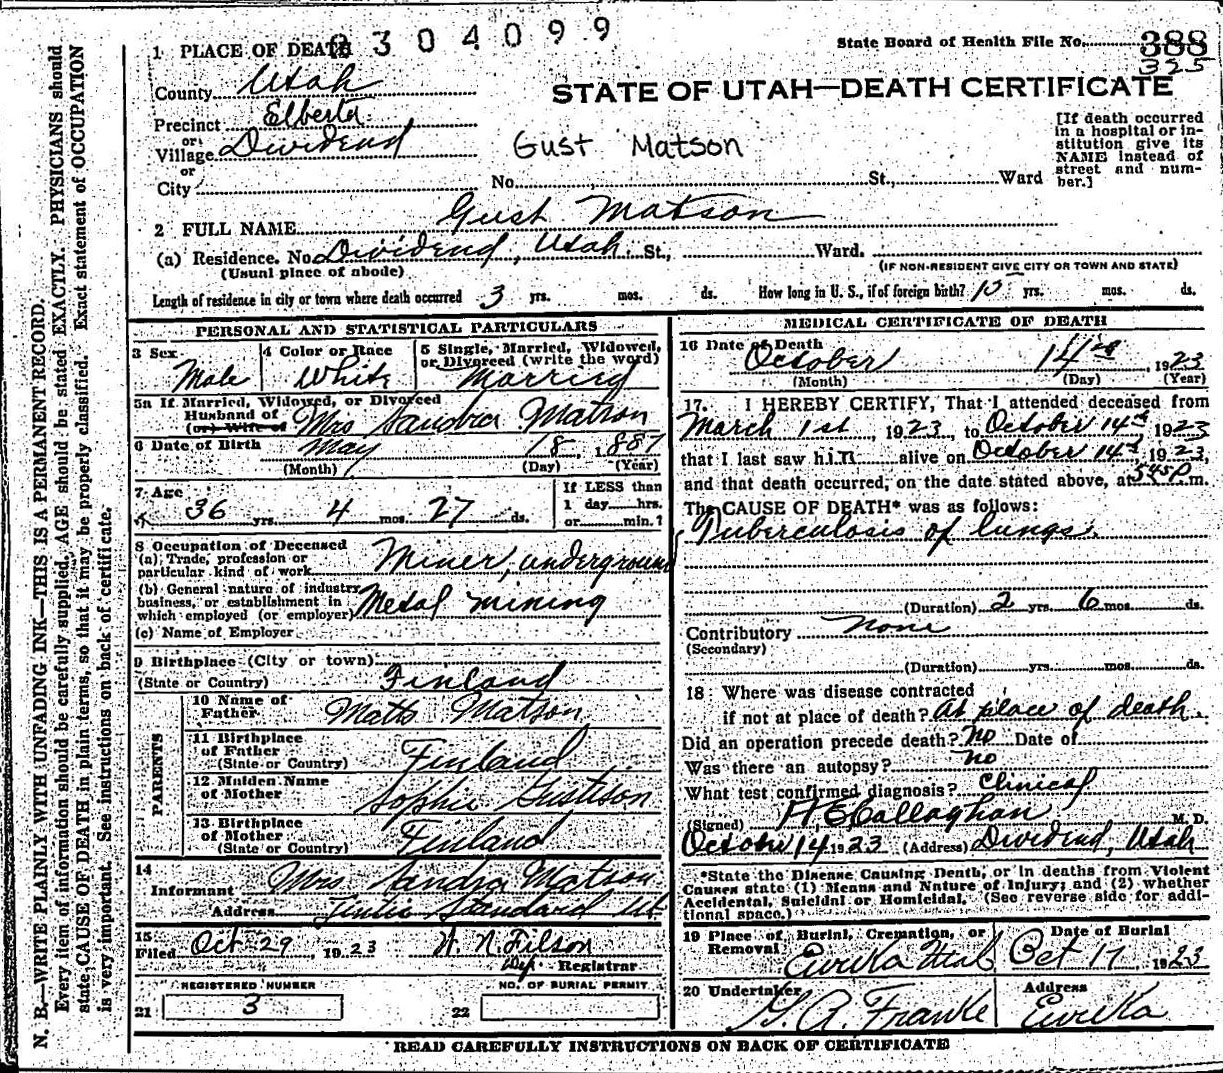 2304099
State Board of Health File No. 388
325
1 PLACE OF DEATH
County Utah
STATE OF UTAH—DEATH CERTIFICATE
Precinct Elberta
or
Village Dividend
or
City
Gust Matson
No. St., Ward
[If death occurred
in a hospital or in-
stitution give its
NAME instead of
street and num-
ber.]
2 FULL NAME Gust Matson
(a) Residence. No. Dividend, Utah. St., Ward.
(Usual place of abode)
(IF NON-RESIDENT GIVE CITY OR TOWN AND STATE)
Length of residence in city or town where death occurred 3 yrs. mos. ds. How long in U. S., if of foreign birth? 15 yrs. mos. ds.
PERSONAL AND STATISTICAL PARTICULARS
3 Sex
Male
4 Color or Race
White
5 Single, Married, Widowed,
or Divorced (write the word)
Married
5a If Married, Widowed, or Divorced
Husband of
(or) Wife of Mrs Sandra Matson
6 Date of Birth May 18, 1887
(Month) (Day) (Year)
7 Age
36 yrs. 4 mos. 27 ds.
If LESS than
1 day hrs.
or min.?
8 Occupation of Deceased
(a) Trade, profession or
particular kind of work Miner, underground
(b) General nature of industry,
business, or establishment in
which employed (or employer) Metal mining
(c) Name of Employer
9 Birthplace (City or town)
(State or Country) Finland
PARENTS
10 Name of
Father Matts Matson
11 Birthplace
of Father
(State or Country) Finland
12 Maiden Name
of Mother Sophie Gustison
13 Birthplace
of Mother
(State or Country) Finland
14
Informant Mrs Sandra Matson
Address Tintic Standard Ut.
15
Filed Oct 29 1923 W. N. Filson
Dep Registrar
REGISTERED NUMBER
21 3
NO. OF BURIAL PERMIT
22
MEDICAL CERTIFICATE OF DEATH
16 Date of Death
October 14th, 1923
(Month) (Day) (Year)
17. I HEREBY CERTIFY, That I attended deceased from
March 1st, 1923, to October 14th 1923
that I last saw him alive on October 14th, 1923,
and that death occurred, on the date stated above, at 545 P.m.
The CAUSE OF DEATH* was as follows:
Tuberculosis of lungs.
(Duration) 2 yrs. 6 mos. ds.
Contributory none
(Secondary)
(Duration) yrs. mos. ds.
18 Where was disease contracted
if not at place of death? At place of death.
Did an operation precede death? No Date of
Was there an autopsy? no
What test confirmed diagnosis? Clinical
(Signed) H E Callaghan M. D.
October 14, 1923 (Address) Dividend, Utah
*State the Disease Causing Death, or in deaths from Violent
Causes state (1) Means and Nature of Injury; and (2) whether
Accidental, Suicidal or Homicidal. (See reverse side for addi-
tional space.)
19 Place of Burial, Cremation, or
Removal Eureka Utah
Date of Burial
Oct 17 1923
20 Undertaker
G. A. Franke
Address
Eureka
READ CAREFULLY INSTRUCTIONS ON BACK OF CERTIFICATE
N. B.—WRITE PLAINLY WITH UNFADING INK—THIS IS A PERMANENT RECORD.
Every item of information should be carefully supplied. AGE should be stated EXACTLY. PHYSICIANS should
state CAUSE OF DEATH in plain terms, so that it may be properly classified. Exact statement of OCCUPATION
is very important. See instructions on back of certificate.